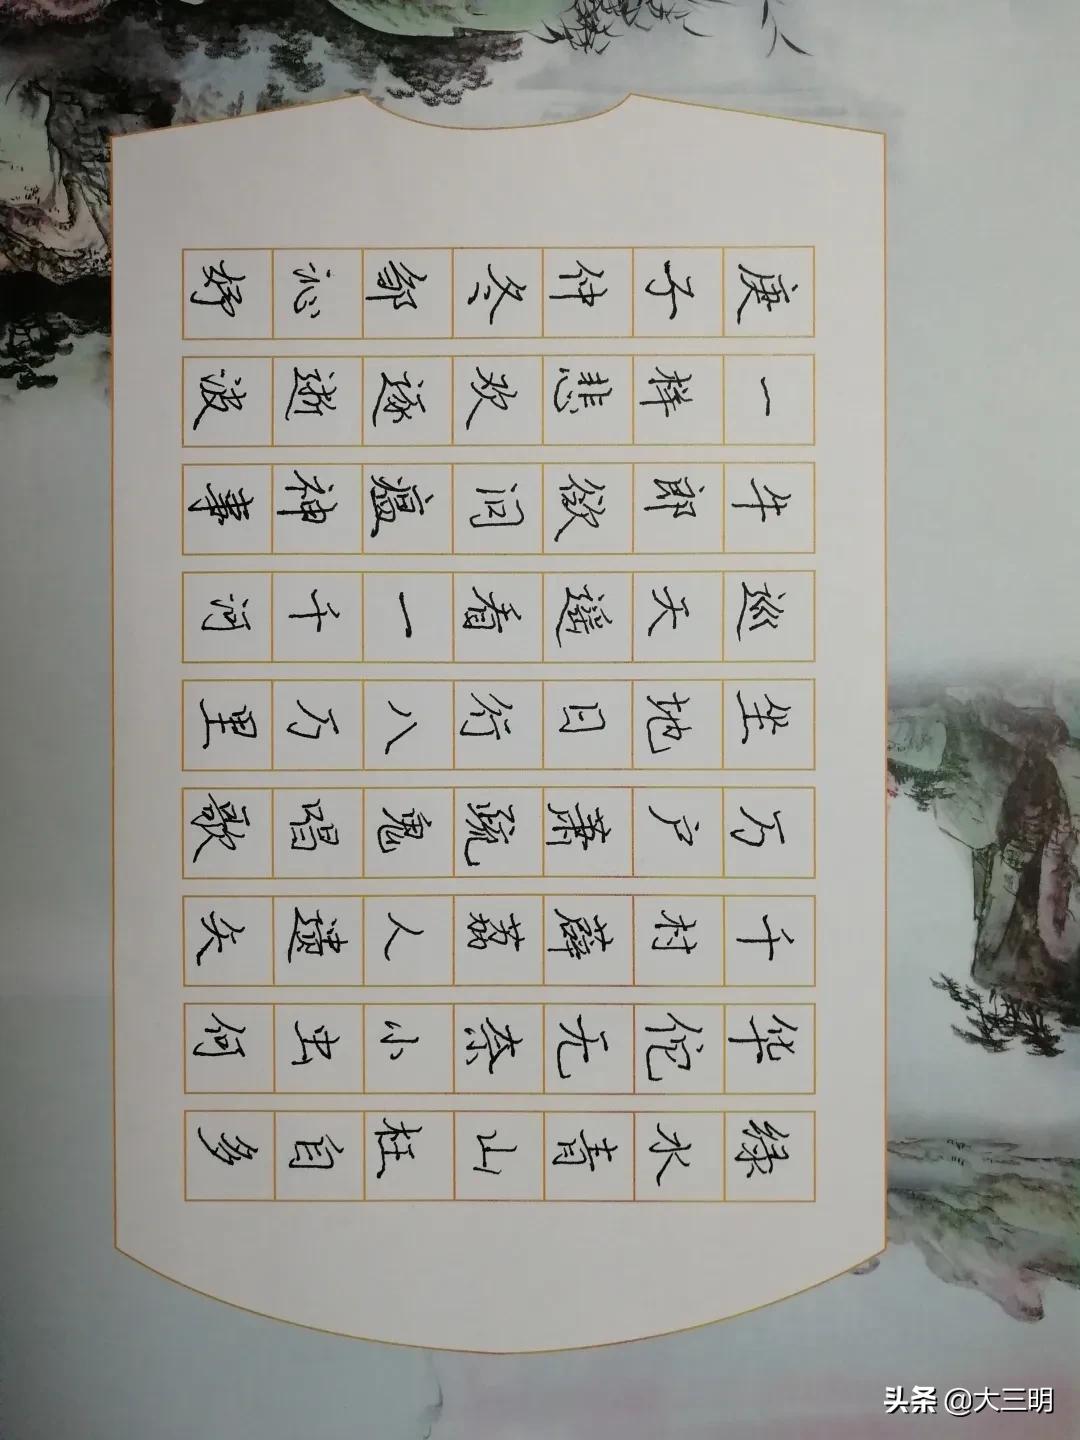 绿水青山枉自多
华佗无奈小虫何
千村薜荔人遗矢
万户萧疏鬼唱歌
坐地日行八万里
巡天遥看一千河
牛郎欲问瘟神事
一样悲欢逐逝波
庚子仲冬邹沁妤
头条 @大三明